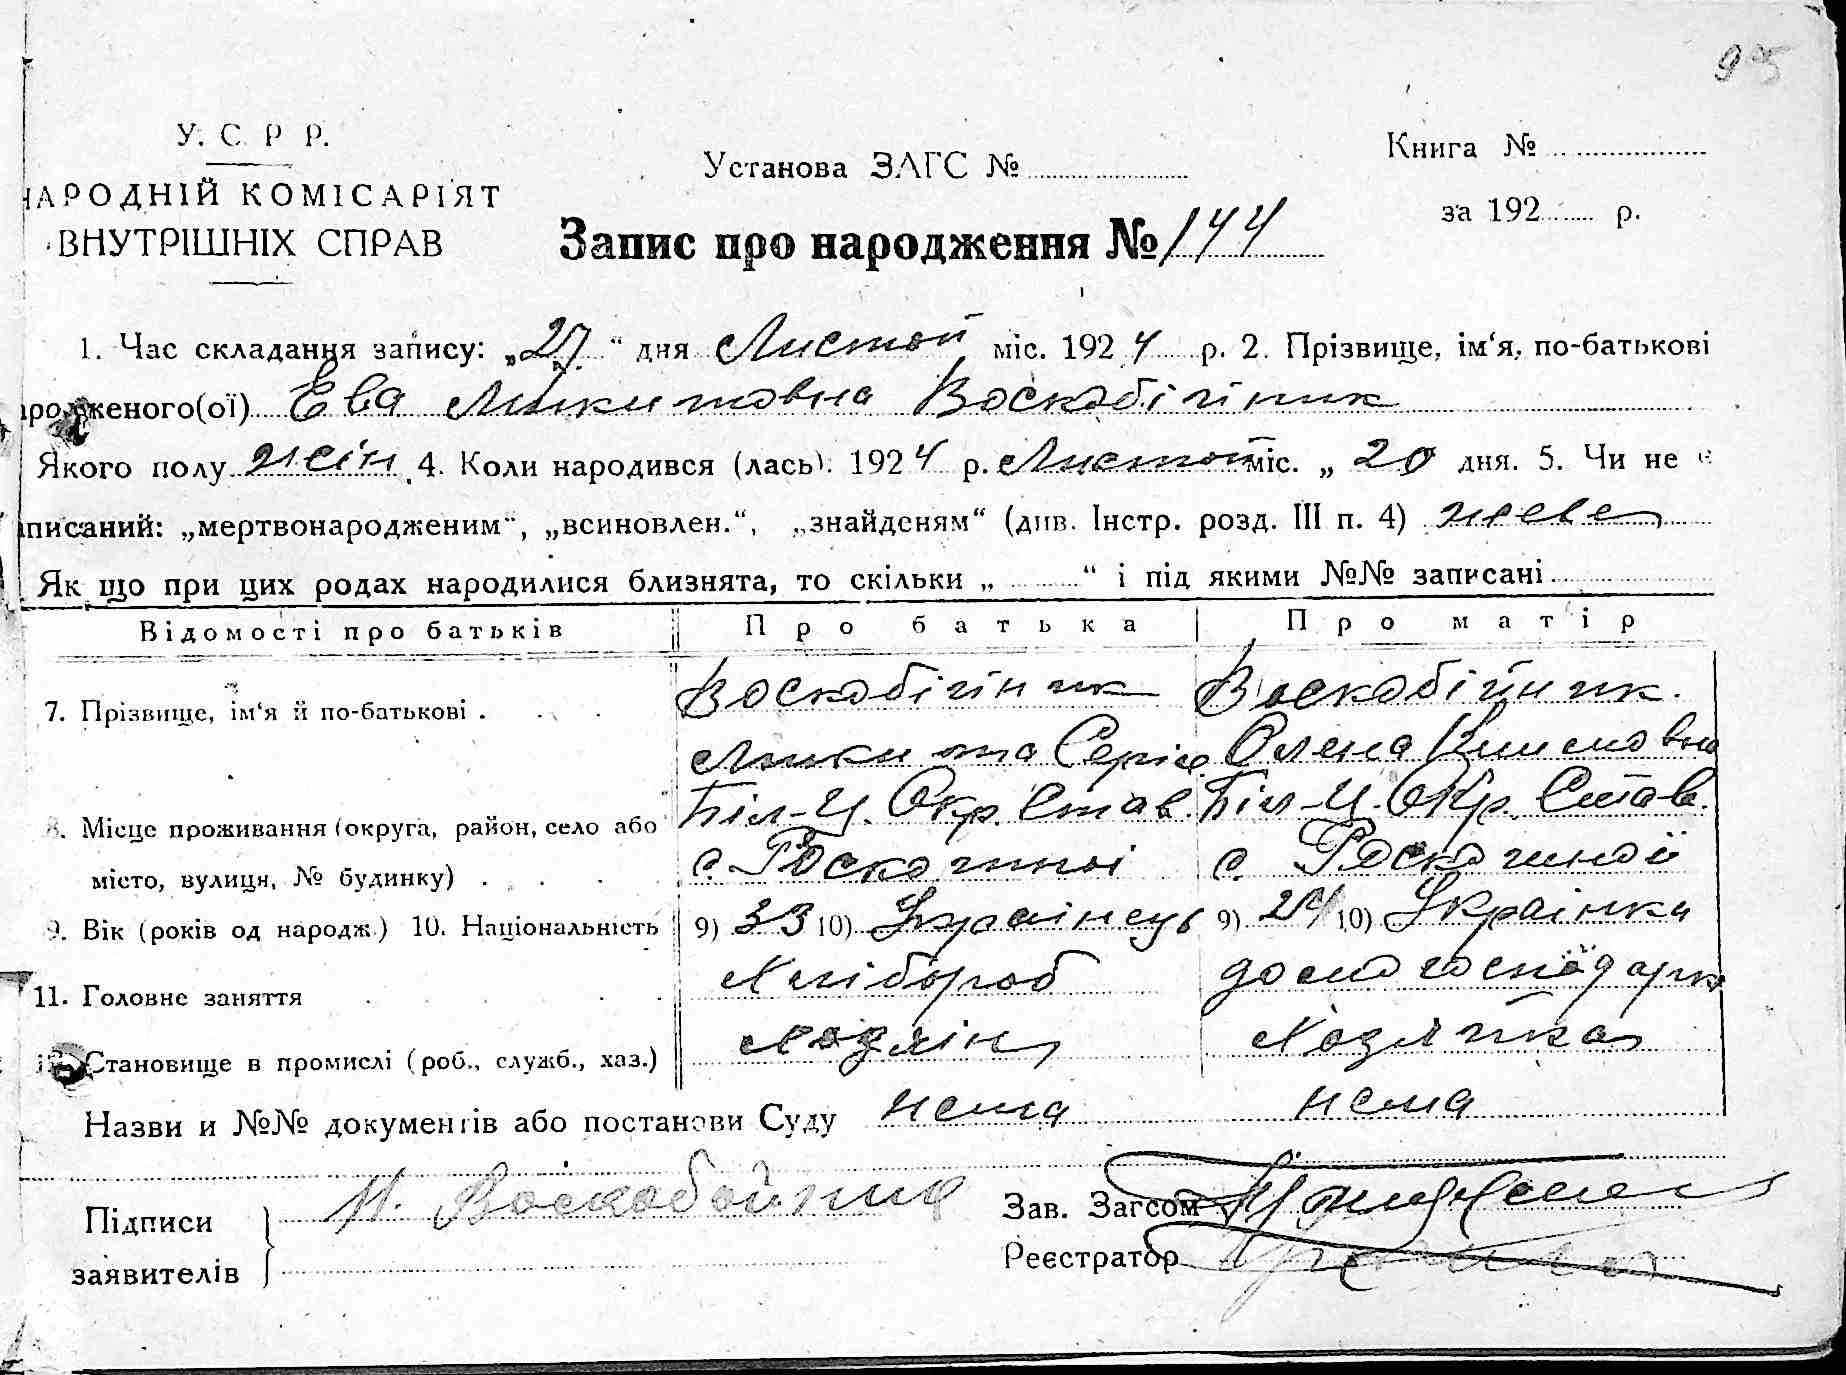 95
У. С. Р. Р.
НАРОДНІЙ КОМІСАРІЯТ
ВНУТРІШНІХ СПРАВ
Установа ЗАГС №
Книга №
за 192 р.
Запис про народження № 144
1. Час складання запису: „27“ дня Листоп міс. 1924 р. 2. Прізвище, ім‘я, по-батькові
родженого(ої) Ева Микитовна Воскобійник
Якого полу жін 4. Коли народився (лась). 1924 р. Листоп міс. „ 20 дня. 5. Чи не є
писаний: „мертвонародженим“, „всиновлен.“, „знайденям“ (див. Інстр. розд. III п. 4) живе
Як що при цих родах народилися близнята, то скільки „ “ і під якими №№ записані
Відомості про батьків Про батька Про матір
7. Прізвище, ім‘я й по-батькові . Воскобійник Воскобійник.
Микита Сергіє. Олена
8. Місце проживання (округа, район, село або Біл-Ц. Окр. Став. Біл-Ц. Окр. Став.
місто, вулиця, № будинку) . с. с.
9. Вік (років од народж.) 10. Національність 9) 33 10) Українець 9) 24 10) Українка
11. Головне заняття Хлібороб домогосподарка
12. Становище в промислі (роб., служб., хаз.) хозяїн Хозяйка
Назви и №№ документів або постанови Суду нема нема
Підписи заявителів Воскобойник
Зав. Загсом
Реєстратор